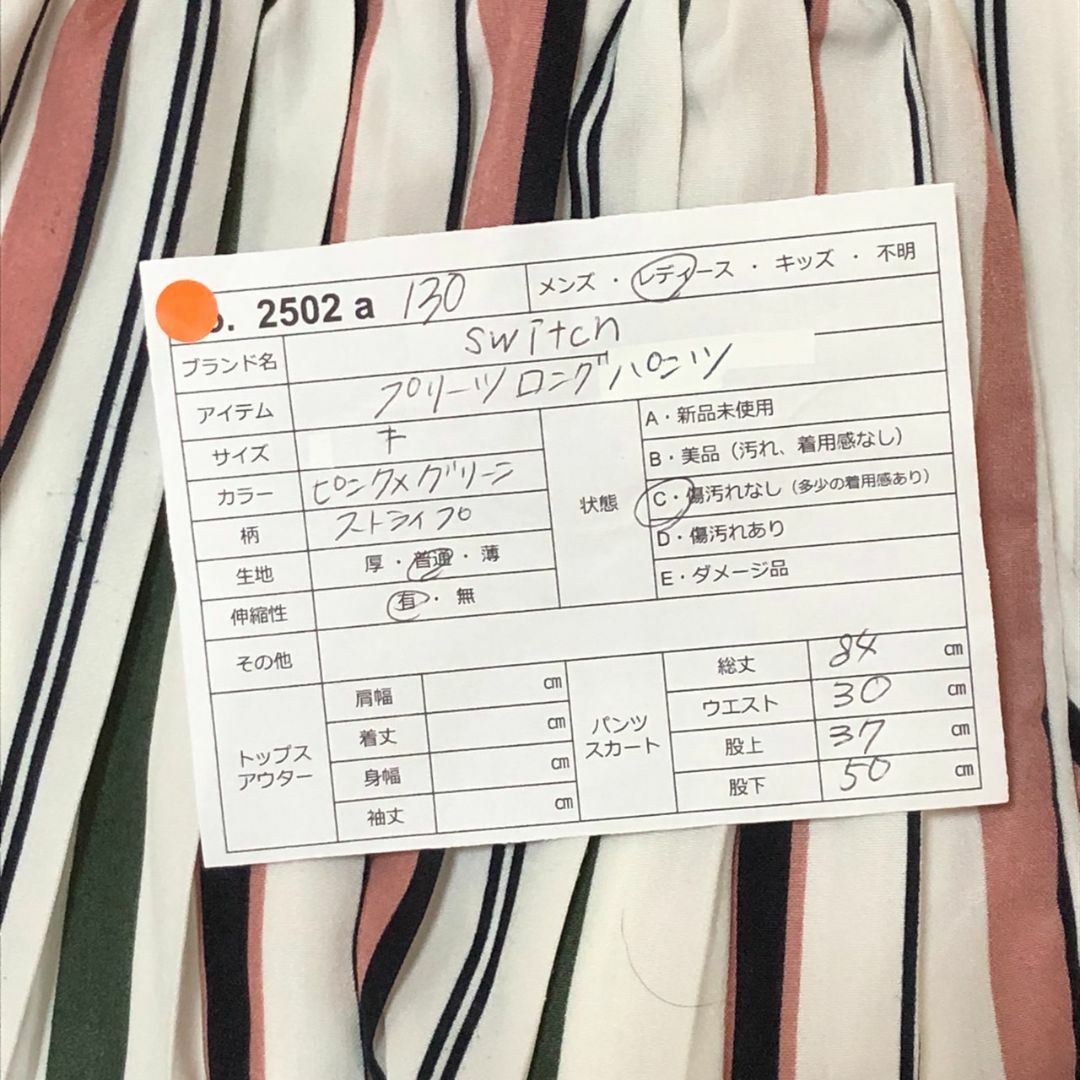 . 2502 a 130 メンズ ・ レディース ・ キッズ ・ 不明
ブランド名 switch
アイテム プリーツロングパンツ
サイズ
カラー ピンク×グリーン
柄 ストライプ
生地 厚・普通・薄
伸縮性 有・無
状態
A・新品未使用
B・美品（汚れ、着用感なし）
C・傷汚れなし（多少の着用感あり）
D・傷汚れあり
E・ダメージ品
その他
トップス
アウター
肩幅 cm
着丈 cm
身幅 cm
袖丈 cm
パンツ
スカート
総丈 84 cm
ウエスト 30 cm
股上 37 cm
股下 50 cm